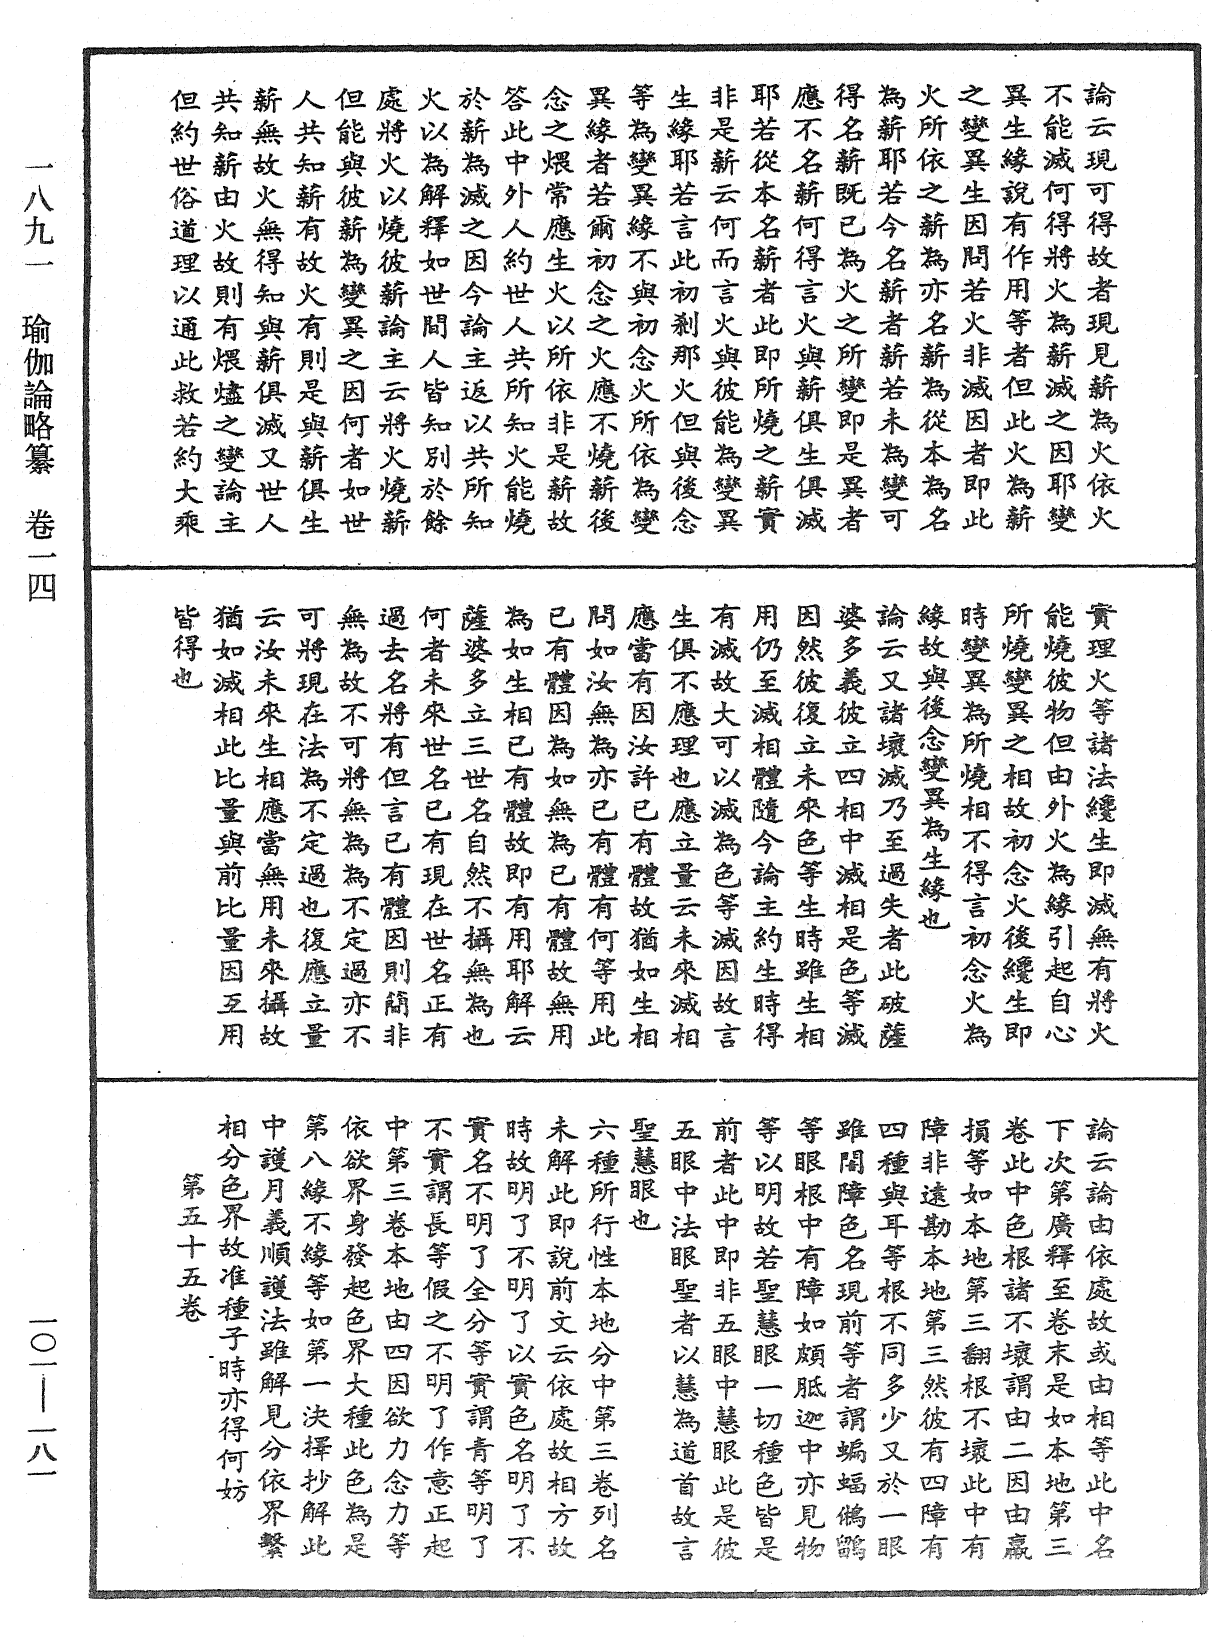 論云現可得故者現見薪為火依火
不能滅何得將火為薪滅之因耶變
異生緣說有作用等者但此火為薪
之變異生因問若火非滅因者即此
火所依之薪為亦名薪為從本為名
為薪耶若今名薪者薪若未為變可
得名薪既已為火之所變即是異者
應不名薪何得言火與薪俱生俱滅
耶若從本名薪者此即所燒之薪實
非是薪云何而言火與彼能為變異
生緣耶若言此初剎那火但與後念
等為變異緣不與初念火所依為變
異緣者若爾初念之火應不燒薪後
念之煨常應生火以所依非是薪故
答此中外人約世人共所知火能燒
於薪為滅之因今論主返以共所知
火以為解釋如世間人皆知別於餘
處將火以燒彼薪論主云將火燒薪
但能與彼薪為變異之因何者如世
人共知薪有故火有則是與薪俱生
薪無故火無得知與薪俱滅又世人
共知薪由火故則有煨燼之變論主
但約世俗道理以通此救若約大乘
實理火等諸法纔生即滅無有將火
能燒彼物但由外火為緣引起自心
所燒變異之相故初念火後纔生即
時變異為所燒相不得言初念火為
緣故與後念變異為生緣也
論云又諸壞滅乃至過失者此破薩
婆多義彼立四相中滅相是色等滅
因然彼復立未來色等生時雖生相
用仍至滅相體隨今論主約生時得
有滅故大可以滅為色等滅因故言
生俱不應理也應立量云未來滅相
應當有因汝許已有體故猶如生相
問如汝無為亦已有體有何等用此
已有體因為如無為已有體故無用
為如生相已有體故即有用耶解云
薩婆多立三世名自然不攝無為也
何者未來世名已有現在世名正有
過去名將有但言已有體因則簡非
無為故不可將無為為不定過亦不
可將現在法為不定過也復應立量
云汝未來生相應當無用未來攝故
猶如滅相此比量與前比量因互用
皆得也
論云論由依處故或由相等此中名
下次第廣釋至卷末是如本地第三
卷此中色根諸不壞謂由二因由羸
損等如本地第三翻根不壞此中有
障非遠勘本地第三然彼有四障有
四種與耳等根不同多少又於一眼
雖闇障色名現前等者謂蝙蝠鵂鶹
等眼根中有障如頗胝迦中亦見物
等以明故若聖慧眼一切種色皆是
前者此中即非五眼中慧眼此是彼
五眼中法眼聖者以慧為道首故言
聖慧眼也
六種所行性本地分中第三卷列名
未解此即說前文云依處故相方故
時故明了不明了以實色名明了不
實名不明了全分等實謂青等明了
不實謂長等假之不明了作意正起
中第三卷本地由四因欲力念力等
依欲界身發起色界大種此色為是
第八緣不緣等如第一決擇抄解此
中護月義順護法雖解見分依界繫
相分色界故准種子時亦得何妨
第五十五卷
一八九一　瑜伽論略纂　卷一四
一〇一——一八一